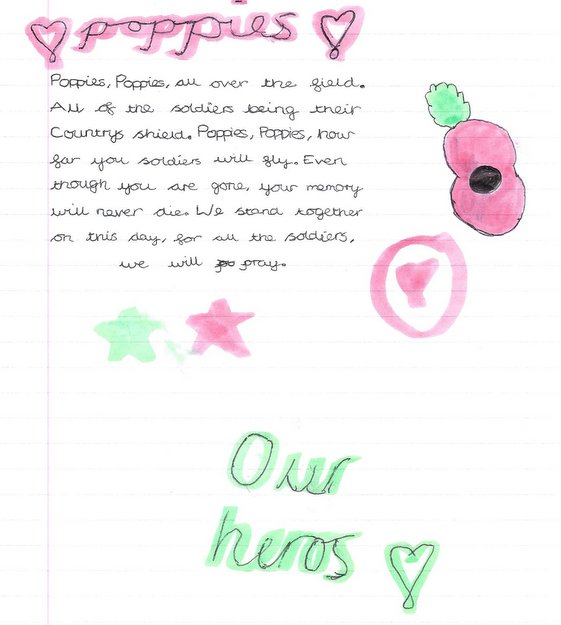 poppies
Poppies, Poppies, all over the field.
All of the soldiers being their
Countrys shield. Poppies, Poppies, how
far you soldiers will fly. Even
though you are gone, your memory
will never die. We stand together
on this day, for all the soldiers,
we will pray.
Our
heros